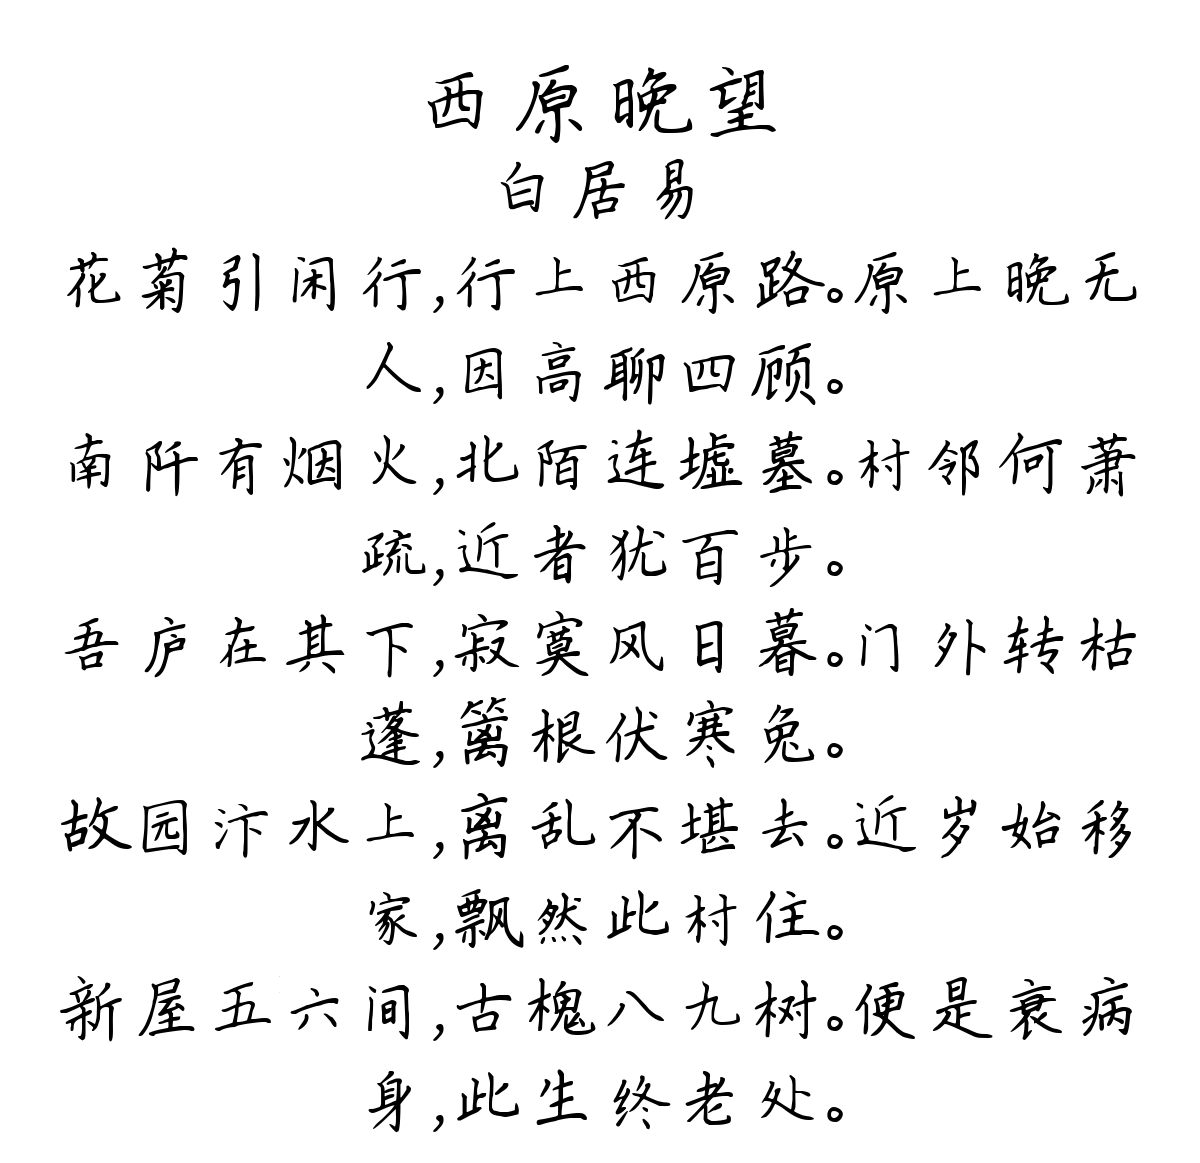 西原晚望
白居易
花菊引闲行,行上西原路。原上晚无
人,因高聊四顾。
南阡有烟火,北陌连墟墓。村邻何萧
疏,近者犹百步。
吾庐在其下,寂寞风日暮。门外转枯
蓬,篱根伏寒兔。
故园汴水上,离乱不堪去。近岁始移
家,飘然此村住。
新屋五六间,古槐八九树。便是衰病
身,此生终老处。